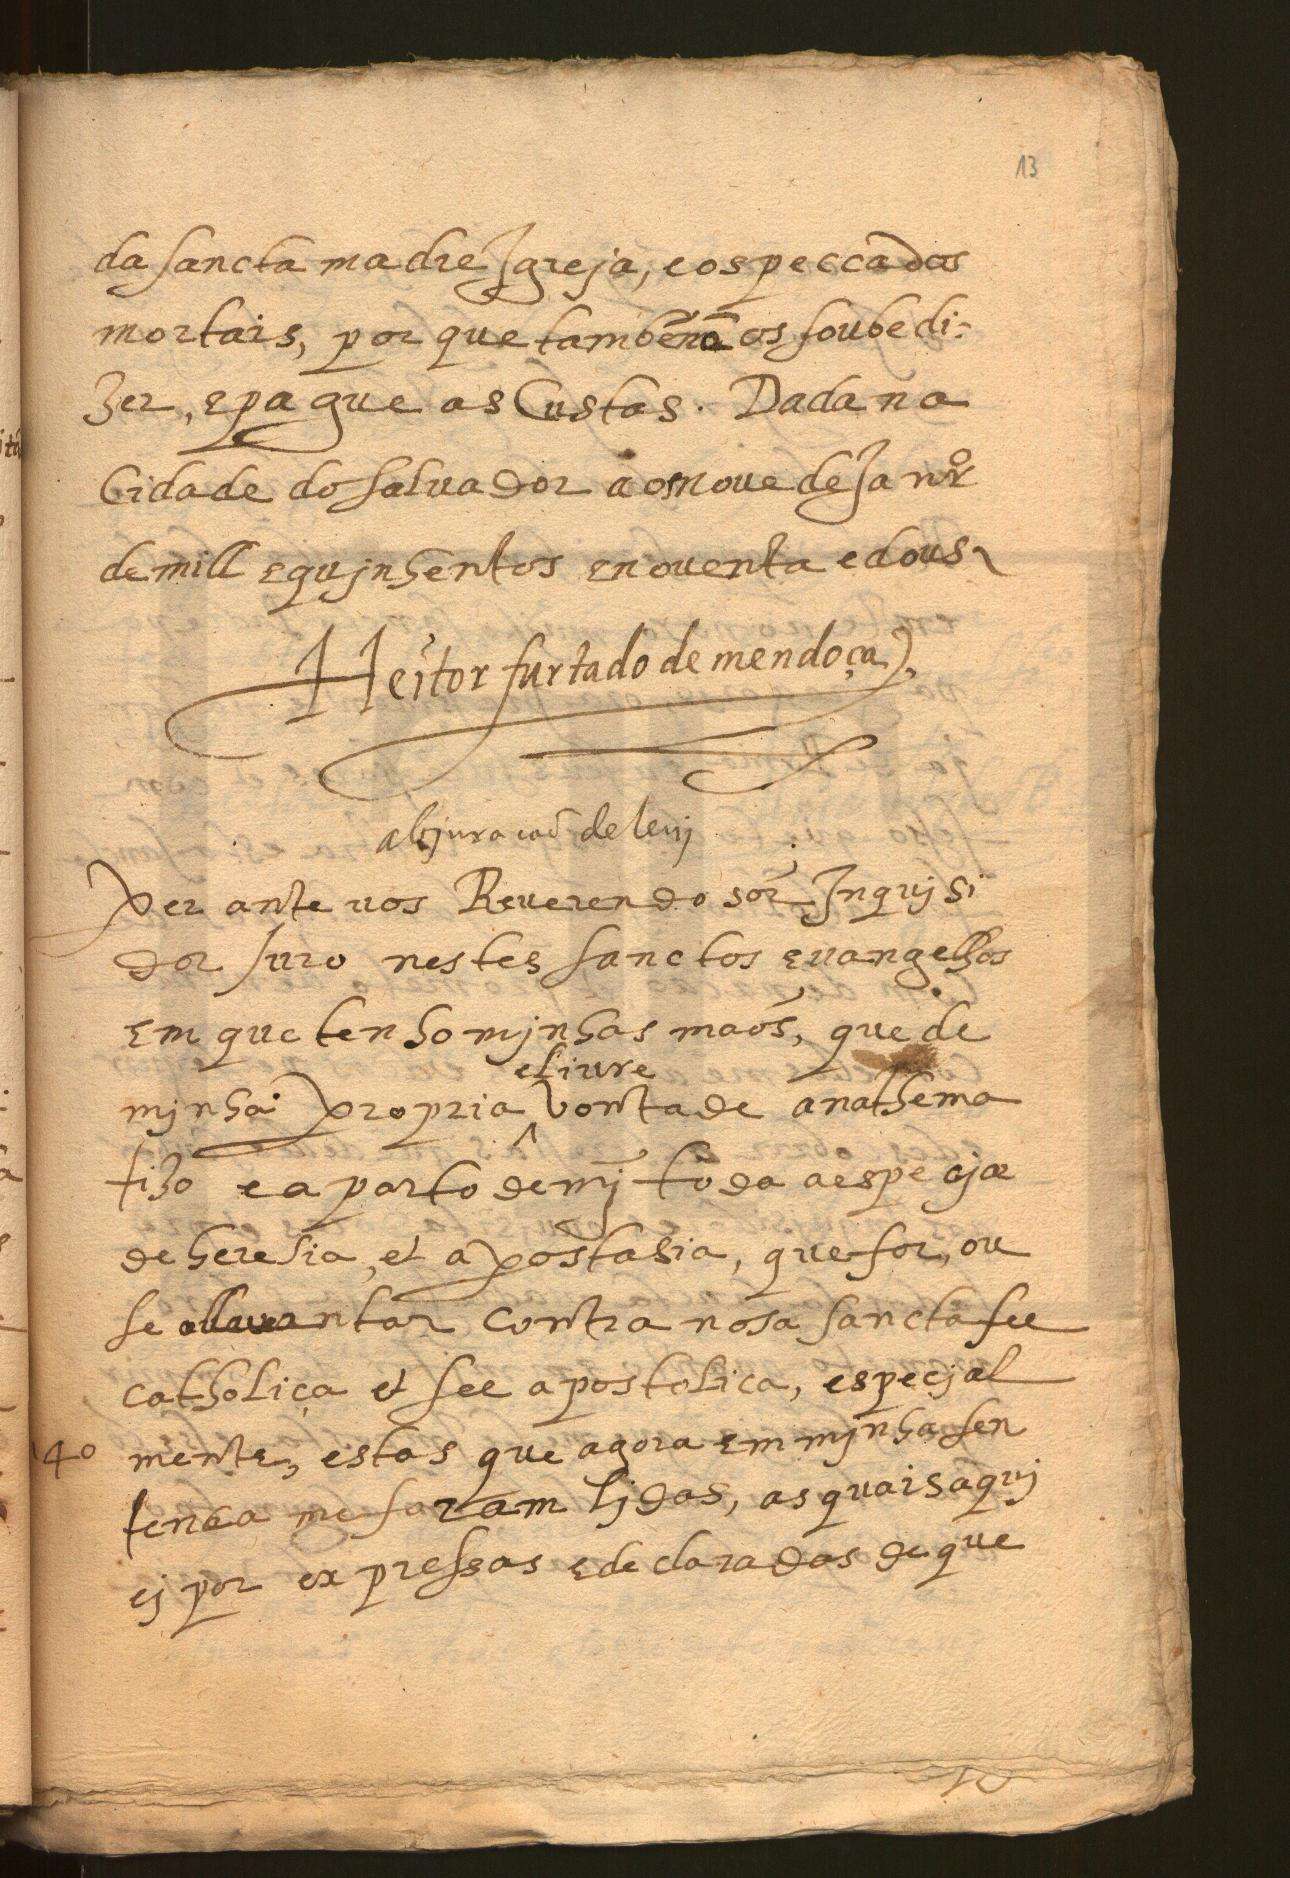 13
da sancta madre Igreja, e os peccados
mortais, por que tambẽ nõ os soube di-
zer, e pague as Custas. Dada na
Cidade do salvador aos nove de Janrº
de mill e quinhentos e noventa e dous
Heitor furtado de mendoça
abjuracaõ de levj
Perante vos Reverendo sõr Inquysi
dor Juro nestes sanctos evangelhos
em que tenho mjnhas maõs, que de
e livre
mjnha propria ^ vontade anathema
tizo e aparto de mj toda a especja
de heresia, et apostasia, que for, ou
se allevantar contra nosa sancta fee
catholica et see apostolica, especjal
40 mente, estas que agora em mjnha sen
tenca me foram ljdas, as quais aquj
ej por expressas e declaradas de que